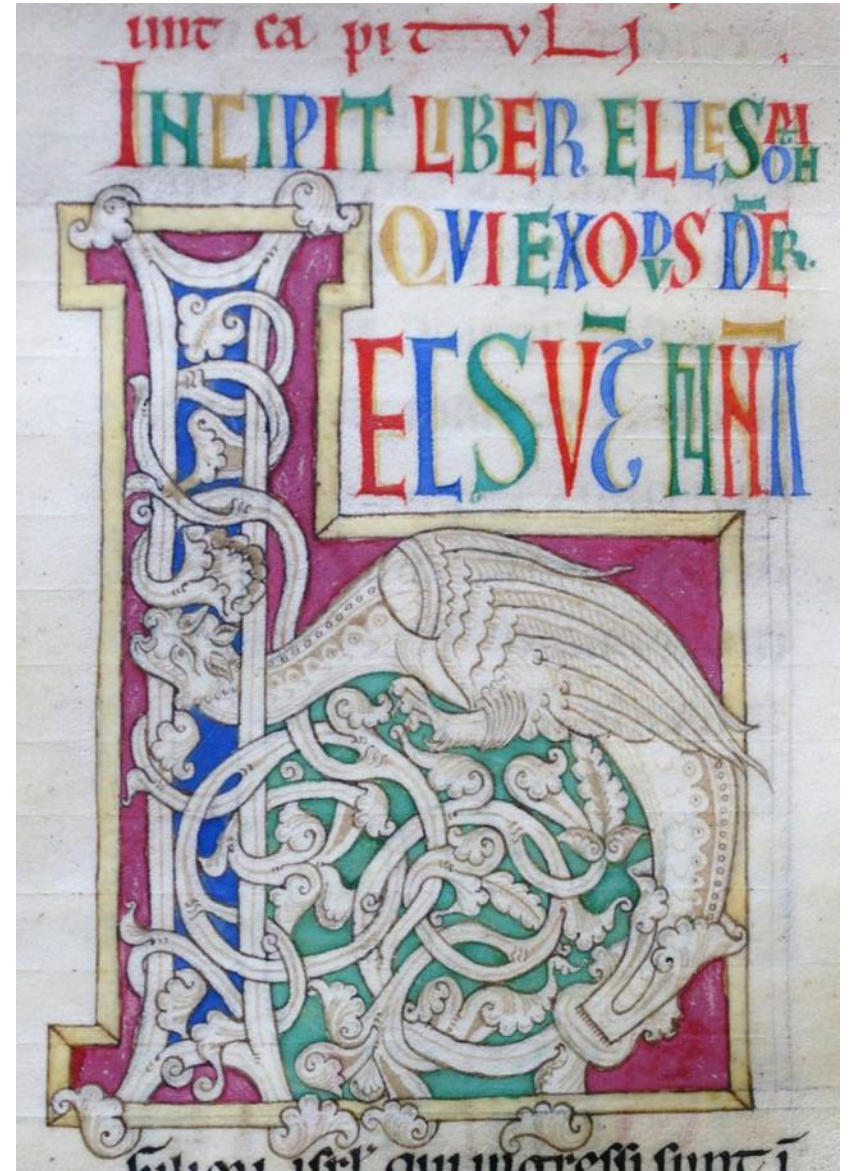 iunt capituli
INCIPIT LIBER ELLESMOTH
QVI EXODVS D̄ER.
HEC SV̄T N̄A
filioꝝ isrl' qui ingressi sunt ī